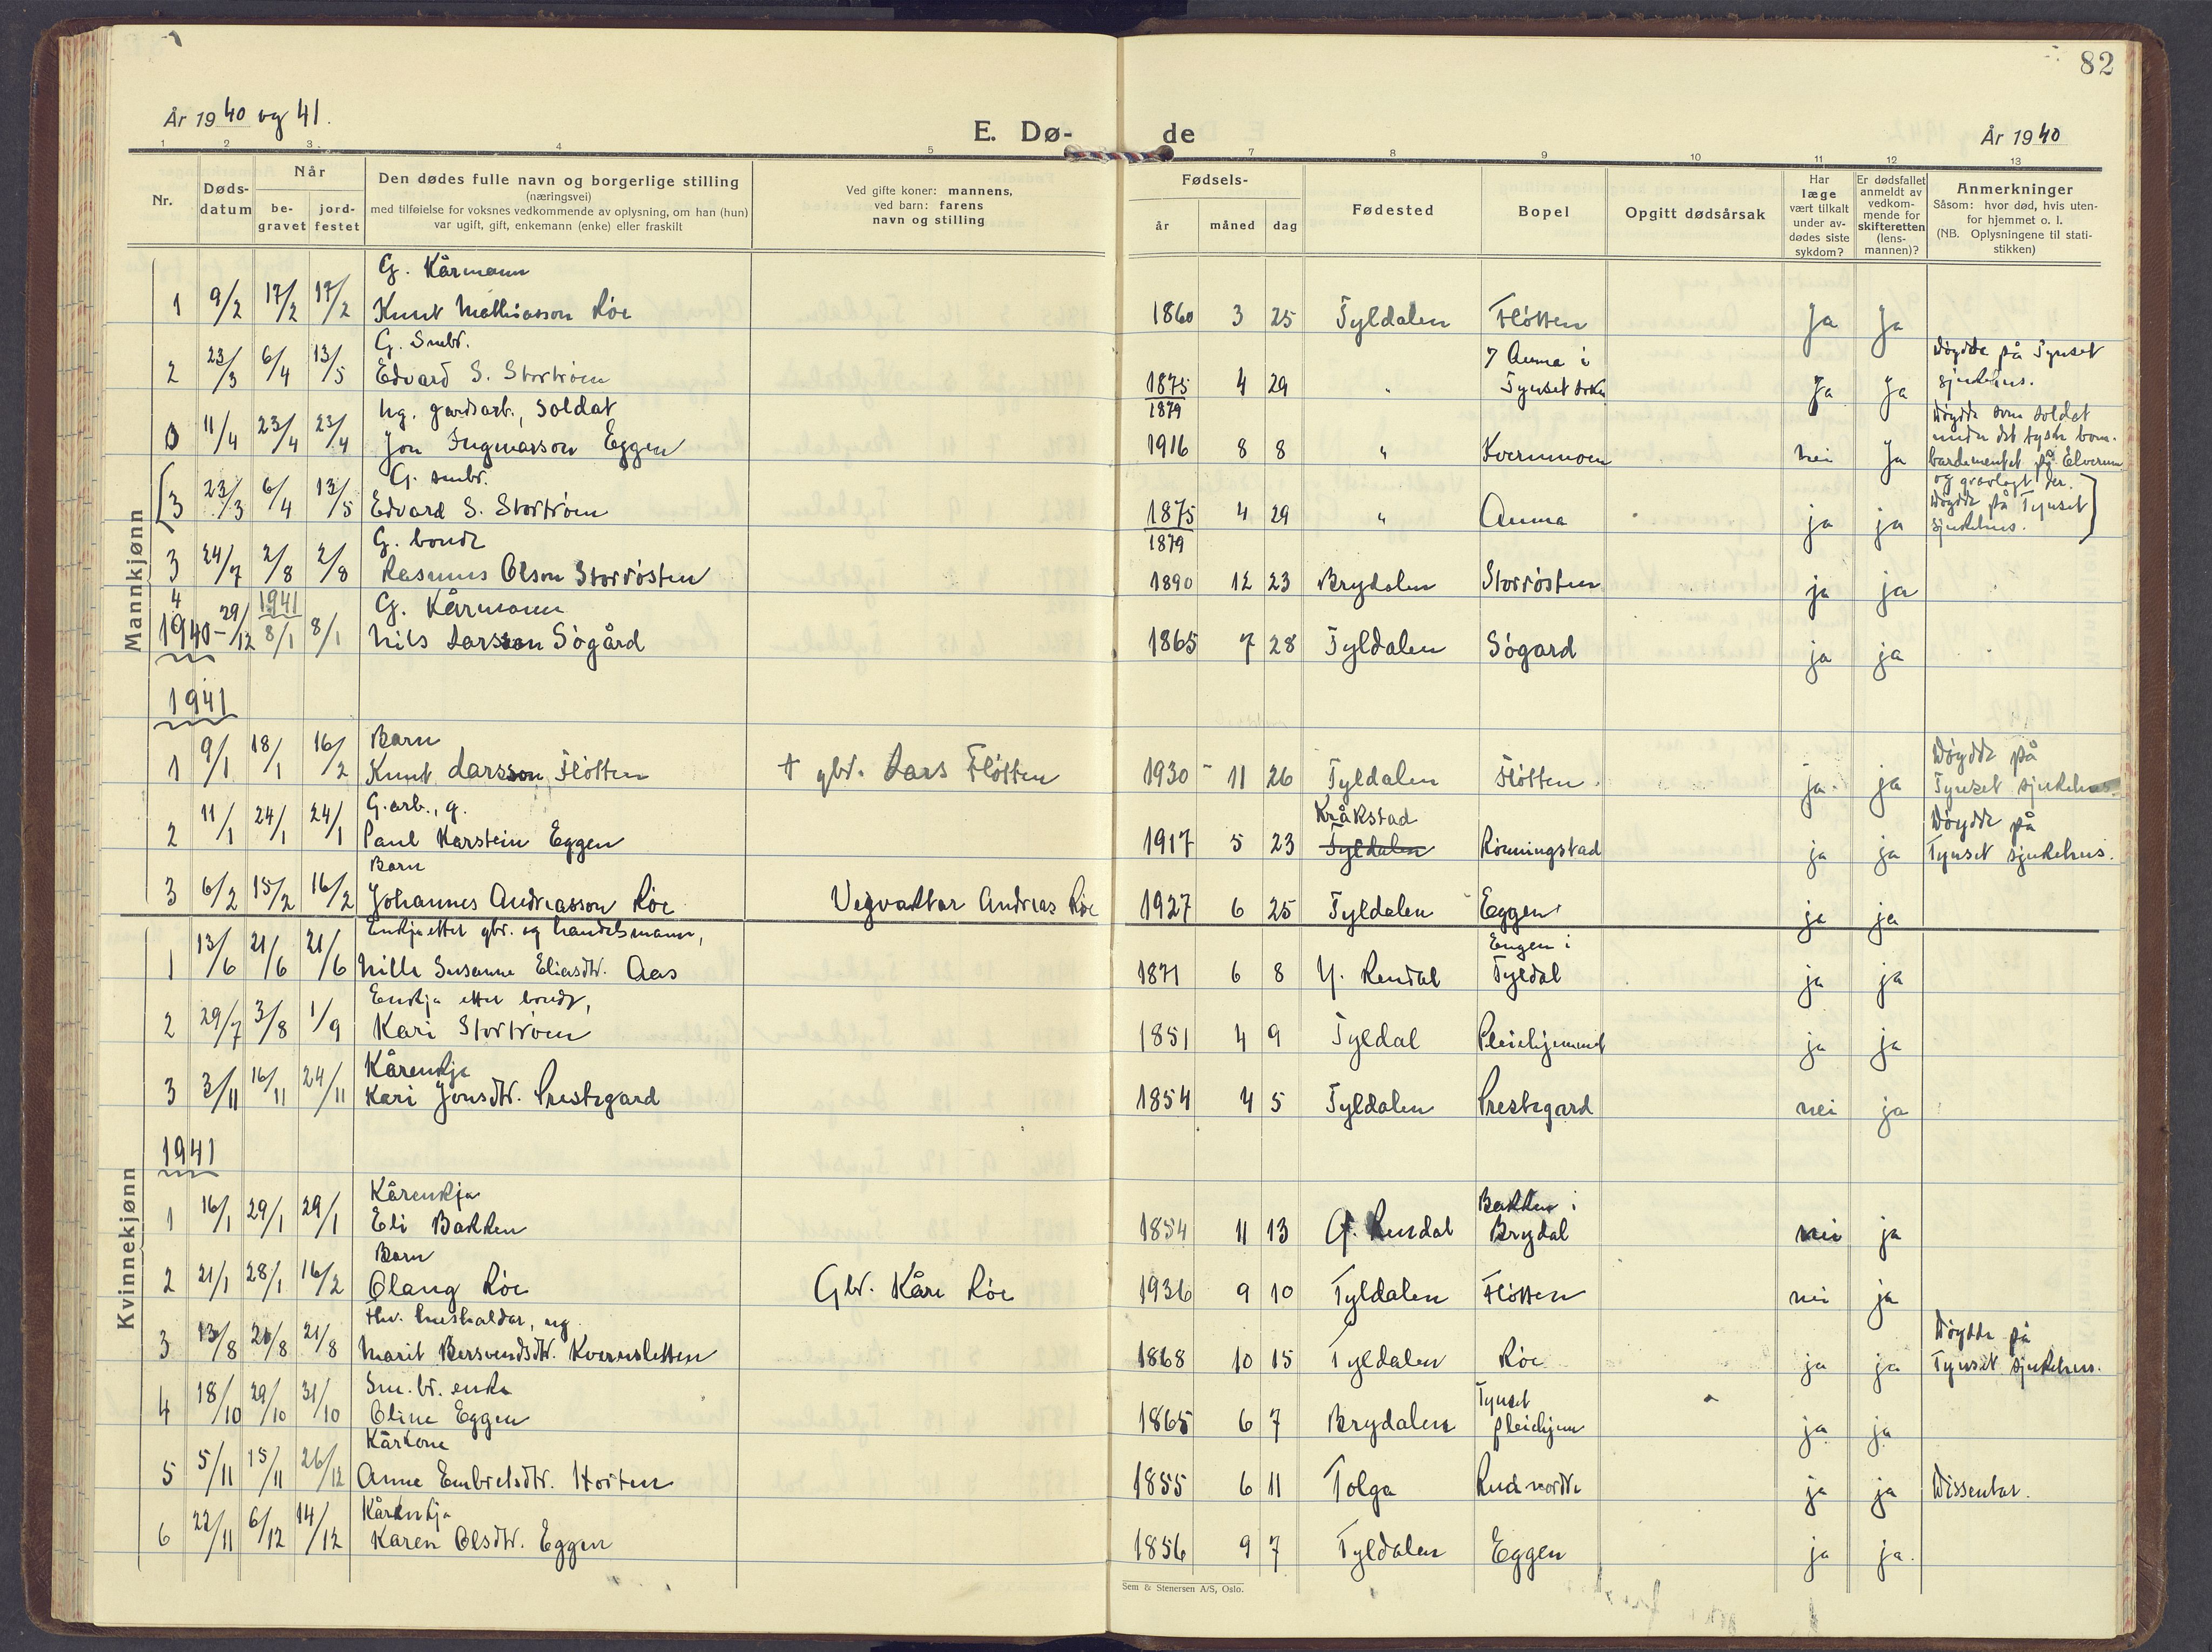 82
År 1940 og 41.
E. Dø-
de
År 1940
1 2 3 4 5 7 8 9 10 11 12 13
Nr.
Døds-
datum
Når
be-
gravet
jord-
festet
Den dødes fulle navn og borgerlige stilling
(næringsvei)
med tilføielse for voksnes vedkommende av oplysning, om han (hun)
var ugift, gift, enkemann (enke) eller fraskilt
Ved gifte koner: mannens,
ved barn: farens
navn og stilling
Fødsels-
år
måned
dag
Fødested
Bopel
Opgitt dødsårsak
Har
læge
vært tilkalt
under av-
dødes siste
sykdom?
Er dødsfallet
anmeldt av
vedkom-
mende for
skifteretten
(lens-
mannen)?
Anmerkninger
Såsom: hvor død, hvis uten-
for hjemmet o. l.
(NB. Oplysningene til stati-
stikken)
Mannkjønn
G. Kårmann
1 9/2 17/2 17/2 Knut Mathiasson Röe 1860 3 25 Tyldalen Flötten Ja Ja
G. Smbr.
2 23/3 6/4 13/5 Edvard S. Storströen 1875 1879 4 29 " Auma i
Tynset Ja Ja Döydde på Tynset
sjukehus.
ug. gardsarb., Soldat
3 11/4 23/4 23/4 Jon Ingmarsson Eggen 1916 8 8 " Kvernmoen nei Ja Döydde som soldat
under det tyske bom-
bardementet på Elverum
og gravlagt der.
G. smbr.
3 23/3 6/4 13/5 Edvard S. Storströen 1875 1879 4 29 " Auma ja ja Döydde på Tynset
sjukehus.
G. bonde
3 24/7 2/8 2/8 Rasmus Olson Storrösten 1890 12 23 Brydalen Storrösten ja ja
4 1941 G. Kårmann
1940 - 29/12 8/1 8/1 Nils Larsson Sögård 1865 7 28 Tyldalen Sögard ja ja
1941
Barn
1 9/1 18/1 16/2 Knut Larsson Flötten † gbr. Lars Flötten 1930 - 11 26 Tyldalen Flötten. ja ja Döydde på
Tynset sjukehus.
G.arb., g. Kråkstad
2 11/1 24/1 24/1 Paul Karstein Eggen 1917 5 23 Tyldalen Rönningstad ja ja Döydde på
Tynset sjukehus.
Barn
3 6/2 15/2 16/2 Johannes Andreasson Röe Vegvaktar Andreas Röe 1927 6 25 Tyldalen Eggen ja ja
Kvinnekjønn
Enkja etter gbr. og handelsmann, Engen i
1 13/6 21/6 21/6 Nille Susanne Eliasdtr. Aas 1871 6 8 Y. Rendal Tyldal ja ja
Enkja etter bonde,
2 29/7 3/8 1/9 Kari Storströen 1851 4 9 Tyldal Pleiehjemmet ja ja
Kårenkja
3 3/11 16/11 24/11 Kari Jonsdtr. Prestegard 1854 4 5 Tyldalen Prestegard nei ja
1941
Kårenkja Bakken i
1 16/1 29/1 29/1 Eli Bakken 1854 11 13 Rendal Brydal nei ja
Barn
2 21/1 28/1 16/2 Olaug Röe Gbr. Kåre Röe 1936 9 10 Tyldalen Flötten nei ja
Fhv. hushaldar, ug.
3 13/8 21/8 21/8 Marit Bersvendsdtr. Kvernsletten 1868 10 15 Tyldalen Röe ja ja Döydde på
Tynset sjukehus.
Sm.br. enke Tynset
4 18/10 29/10 31/10 Oline Eggen 1865 6 7 Brydalen pleiehjem ja ja
Kårkone
5 5/11 15/11 26/12 Anne Embretsdtr. Horten 1855 6 11 Tolga Rud nordre ja ja Dissenter.
Kårenkja
6 22/11 6/12 14/12 Karen Olsdtr. Eggen 1856 9 7 Tyldalen Eggen ja ja.
Sem & Stenersen A/S, Oslo.